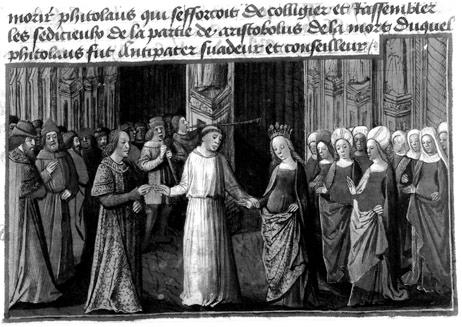 morir phitolaus qui sefforcoit de colligier et Rassembler
les sedicieux de la partie de aristobolus de la mort duquel
phitolaus fut Antipater suadeur et conseilleur